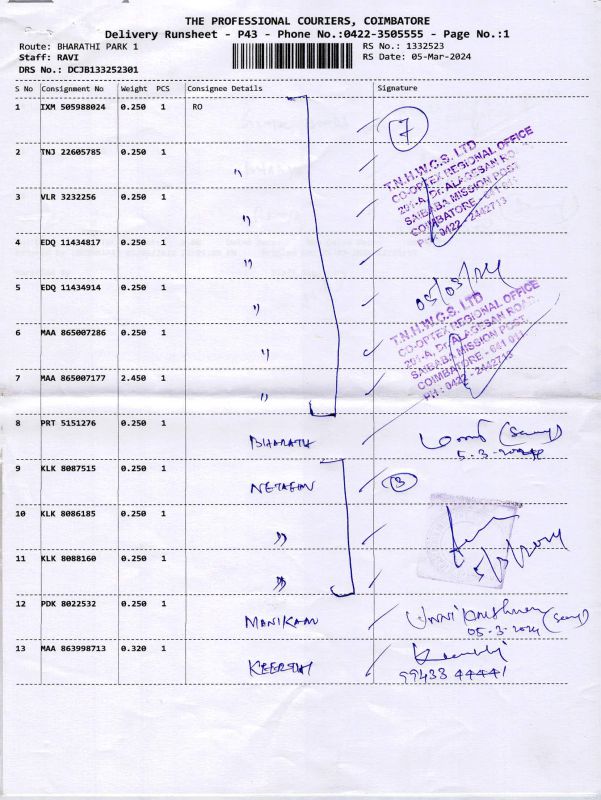 THE PROFESSIONAL COURIERS, COIMBATORE
Delivery Runsheet - P43 - Phone No.:0422-3505555 - Page No.:1
Route: BHARATHI PARK 1 RS No.: 1332523
Staff: RAVI RS Date: 05-Mar-2024
DRS No.: DCJB133252301
S No Consignment No Weight PCS Consignee Details Signature
1 IXM 505988024 0.250 1 RO 7
2 TNJ 22605785 0.250 1 "
3 VLR 3232256 0.250 1 "
4 EDQ 11434817 0.250 1 "
5 EDQ 11434914 0.250 1 "
6 MAA 865007286 0.250 1 "
7 MAA 865007177 2.450 1 "
T.N.H.W.C.S. LTD
CO-OPTEX REGIONAL OFFICE
201-A, Dr. ALAGESAN ROAD
SAIBABA MISSION POST
COIMBATORE - 641 011
PH : 0422 - 2442713
05/03/24
T.N.H.W.C.S. LTD
CO-OPTEX REGIONAL OFFICE
201-A, Dr. ALAGESAN ROAD,
SAIBABA MISSION POST,
COIMBATORE - 641 011
PH : 0422 - 2442713
8 PRT 5151276 0.250 1 BHARATH
5-3-2024
9 KLK 8087515 0.250 1 3
10 KLK 8086185 0.250 1 "
11 KLK 8088160 0.250 1 "
5/3/2024
12 PDK 8022532 0.250 1 MANIKAM Unnikrishnan
05-3-2024
13 MAA 863998713 0.320 1 KEERTHI
99433 44441